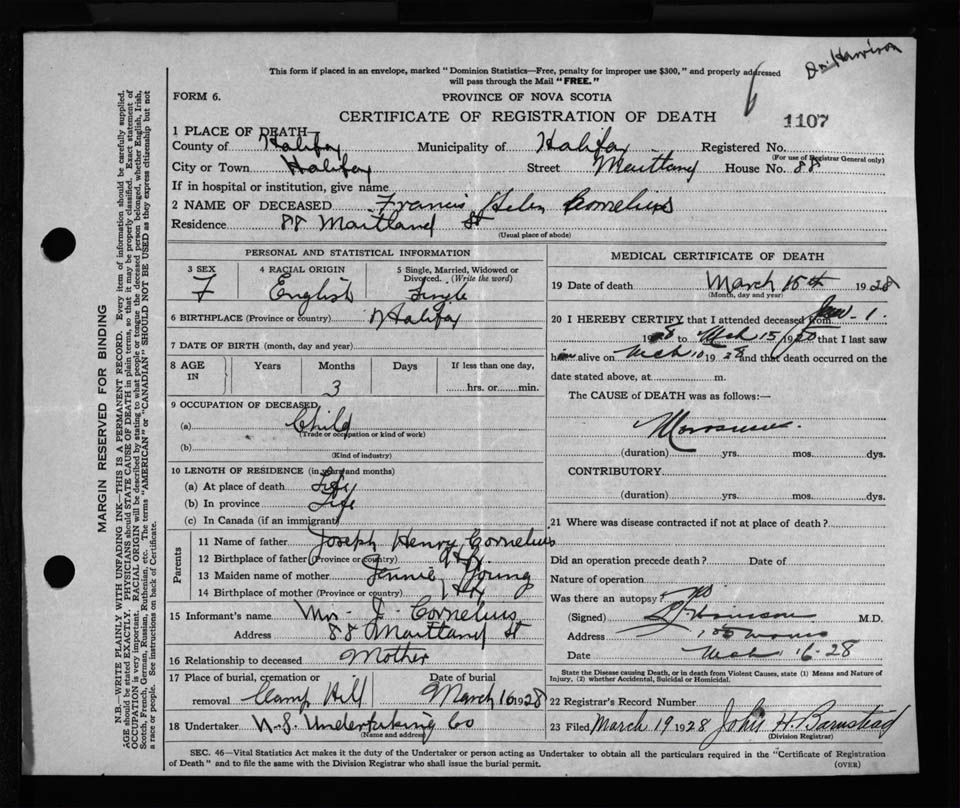 Dr. Harrison
This form if placed in an envelope, marked "Dominion Statistics—Free, penalty for improper use $300," and properly addressed
will pass through the Mail "FREE."
FORM 6. PROVINCE OF NOVA SCOTIA
CERTIFICATE OF REGISTRATION OF DEATH 1107
1 PLACE OF DEATH—
County of Halifax Municipality of Halifax Registered No.
(For use of Registrar General only)
City or Town Halifax Street Maitland House No. 88
If in hospital or institution, give name
2 NAME OF DECEASED Francis Helen Cornelius
Residence 88 Maitland St
(Usual place of abode)
PERSONAL AND STATISTICAL INFORMATION
3 SEX 4 RACIAL ORIGIN 5 Single, Married, Widowed or Divorced. (Write the word)
F English Single
6 BIRTHPLACE (Province or country) Halifax
7 DATE OF BIRTH (month, day and year)
8 AGE IN Years Months Days If less than one day,
3 hrs. or min.
9 OCCUPATION OF DECEASED
(a) Child
(Trade or occupation or kind of work)
(b)
(Kind of industry)
10 LENGTH OF RESIDENCE (in years and months)
(a) At place of death Life
(b) In province Life
(c) In Canada (if an immigrant)
Parents
11 Name of father Joseph Henry Cornelius
12 Birthplace of father (Province or country) Hfx
13 Maiden name of mother Jennie Young
14 Birthplace of mother (Province or country) Hfx
15 Informant's name Mrs J. Cornelius
Address 88 Maitland St
16 Relationship to deceased Mother
17 Place of burial, cremation or removal Camp Hill Date of burial March 16 1928
18 Undertaker N.S. Undertaking Co
(Name and address)
MEDICAL CERTIFICATE OF DEATH
19 Date of death March 15th 1928
(Month, day and year)
20 I HEREBY CERTIFY that I attended deceased from Jan. 1.
1928 to Mch 15 19 that I last saw
h alive on Mch 10 1928 and that death occurred on
date stated above, at m.
The CAUSE of DEATH was as follows:—
Marasmus.
(duration) yrs. mos. dys.
CONTRIBUTORY
(duration) yrs. mos. dys.
21 Where was disease contracted if not at place of death?
Did an operation precede death? Date of
Nature of operation
Was there an autopsy? No
(Signed) M.D.
Address
Date Mch 16-28
State the Disease causing Death, or in death from Violent Causes, state (1) Means and Nature of
Injury, (2) whether Accidental, Suicidal or Homicidal.
22 Registrar's Record Number
23 Filed March 19 1928 John H. Barnstead
(Division Registrar)
SEC. 46—Vital Statistics Act makes it the duty of the Undertaker or person acting as Undertaker to obtain all the particulars required in the "Certificate of Registration
of Death" and to file the same with the Division Registrar who shall issue the burial permit. (OVER)
MARGIN RESERVED FOR BINDING
N.B.—WRITE PLAINLY WITH UNFADING INK—THIS IS A PERMANENT RECORD. Every item of information should be carefully supplied.
AGE should be stated EXACTLY. PHYSICIANS should STATE CAUSE OF DEATH in plain terms, so that it may be properly classified. Exact statement of
OCCUPATION is very important. RACIAL ORIGIN will be described by stating to what people or tongue the deceased person belonged, whether English, Irish,
Scotch, French, German, Russian, Ruthenian, etc. The terms "AMERICAN" or "CANADIAN" SHOULD NOT BE USED as they express citizenship but not
a race or people. See instructions on back of Certificate.